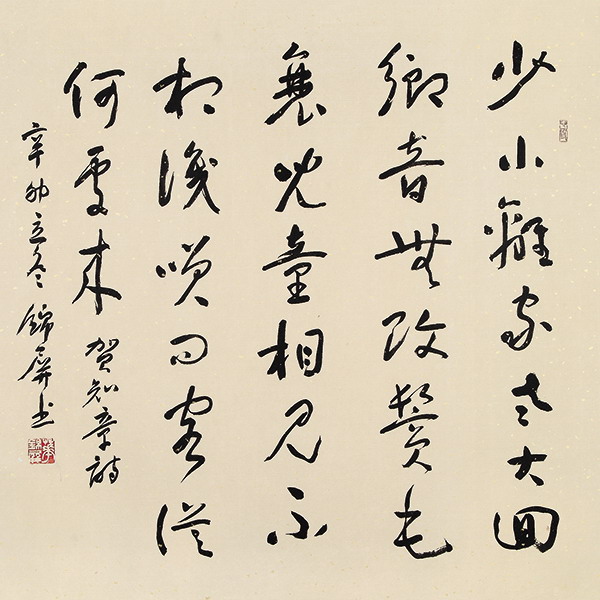 少小離家老大回
鄉音無改鬢毛
衰兒童相見不
相識咲問客從
何處來 賀知章詩
辛卯立冬錦屏書